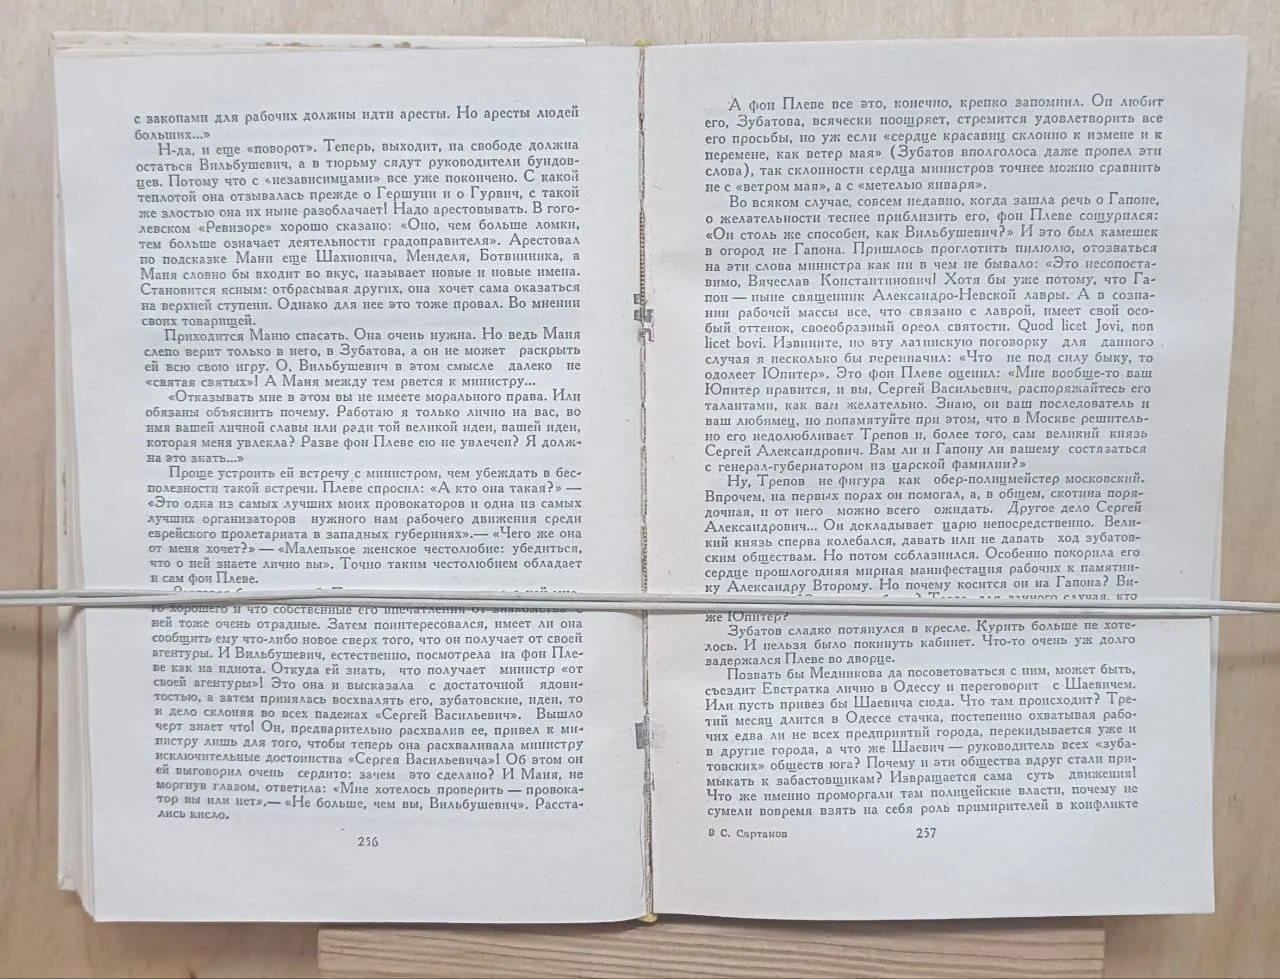 с законами для рабочих должны идти аресты. Но аресты людей
больших...»
Н-да, и еще «поворот». Теперь, выходит, на свободе должна
остаться Вильбушевич, а в тюрьму сядут руководители бундов-
цев. Потому что с «независимцами» все уже покончено. С какой
теплотой она отзывалась прежде о Гершуни и о Гурвич, с такой
же злостью она их ныне разоблачает! Надо арестовывать. В гого-
левском «Ревизоре» хорошо сказано: «Оно, чем больше ломки,
тем больше означает деятельности градоправителя». Арестовал
по подсказке Мани еще Шахновича, Менделя, Ботвинника, а
Маня словно бы входит во вкус, называет новые и новые имена.
Становится ясным: отбрасывая других, она хочет сама оказаться
на верхней ступени. Однако для нее это тоже провал. Во мнении
своих товарищей.
Приходится Маню спасать. Она очень нужна. Но ведь Маня
слепо верит только в него, в Зубатова, а он не может раскрыть
ей всю свою игру. О, Вильбушевич в этом смысле далеко не
«святая святых»! А Маня между тем рвется к министру...
«Отказывать мне в этом вы не имеете морального права. Или
обязаны объяснить почему. Работаю я только лично на вас, во
имя вашей личной славы или ради той великой идеи, вашей идеи,
которая меня увлекла? Разве фон Плеве ею не увлечен? Я долж-
на это знать...»
Проще устроить ей встречу с министром, чем убеждать в бес-
полезности такой встречи. Плеве спросил: «А кто она такая?» —
«Это одна из самых лучших моих провокаторов и одна из самых
лучших организаторов нужного нам рабочего движения среди
еврейского пролетариата в западных губерниях».— «Чего же она
от меня хочет?» — «Маленькое женское честолюбие: убедиться,
что о ней знаете лично вы». Точно таким честолюбием обладает
и сам фон Плеве.
го хорошего и что собственные его впечатления от знакомства с
ней тоже очень отрадные. Затем поинтересовался, имеет ли она
сообщить ему что-либо новое сверх того, что он получает от своей
агентуры. И Вильбушевич, естественно, посмотрела на фон Пле-
ве как на идиота. Откуда ей знать, что получает министр «от
своей агентуры»! Это она и высказала с достаточной ядови-
тостью, а затем принялась восхвалять его, зубатовские, идеи, то
и дело склоняя во всех падежах «Сергей Васильевич». Вышло
черт знает что! Он, предварительно расхвалив ее, привел к ми-
нистру лишь для того, чтобы теперь она расхваливала министру
исключительные достоинства «Сергея Васильевича»! Об этом он
ей выговорил очень сердито: зачем это сделано? И Маня, не
моргнув глазом, ответила: «Мне хотелось проверить — провока-
тор вы или нет».— «Не больше, чем вы, Вильбушевич». Расста-
лись кисло.
256
А фон Плеве все это, конечно, крепко запомнил. Он любит
его, Зубатова, всячески поощряет, стремится удовлетворить все
его просьбы, но уж если «сердце красавиц склонно к измене и к
перемене, как ветер мая» (Зубатов вполголоса даже пропел эти
слова), так склонности сердца министров точнее можно сравнить
не с «ветром мая», а с «метелью января».
Во всяком случае, совсем недавно, когда зашла речь о Гапоне,
о желательности теснее приблизить его, фон Плеве сощурился:
«Он столь же способен, как Вильбушевич?» И это был камешек
в огород не Гапона. Пришлось проглотить пилюлю, отозваться
на эти слова министра как ни в чем не бывало: «Это несопоста-
вимо, Вячеслав Константинович! Хотя бы уже потому, что Га-
пон — ныне священник Александро-Невской лавры. А в созна-
нии рабочей массы все, что связано с лаврой, имеет свой осо-
бый оттенок, своеобразный ореол святости. Quod licet Jovi, non
licet bovi. Извините, но эту латинскую поговорку для данного
случая я несколько бы переиначил: «Что не под силу быку, то
одолеет Юпитер». Это фон Плеве оценил: «Мне вообще-то ваш
Юпитер нравится, и вы, Сергей Васильевич, распоряжайтесь его
талантами, как вам желательно. Знаю, он ваш последователь и
ваш любимец, но попамятуйте при этом, что в Москве решитель-
но его недолюбливает Трепов и, более того, сам великий князь
Сергей Александрович. Вам ли и Гапону ли вашему состязаться
с генерал-губернатором из царской фамилии?»
Ну, Трепов не фигура как обер-полицмейстер московский.
Впрочем, на первых порах он помогал, а, в общем, скотина поря-
дочная, и от него можно всего ожидать. Другое дело Сергей
Александрович... Он докладывает царю непосредственно. Вели-
кий князь сперва колебался, давать или не давать ход зубатов-
ским обществам. Но потом соблазнился. Особенно покорила его
сердце прошлогодняя мирная манифестация рабочих к памятни-
ку Александру Второму. Но почему косится он на Гапона? Ви-
же Юпитер?
Зубатов сладко потянулся в кресле. Курить больше не хоте-
лось. И нельзя было покинуть кабинет. Что-то очень уж долго
задержался Плеве во дворце.
Позвать бы Медникова да посоветоваться с ним, может быть,
съездит Евстратка лично в Одессу и переговорит с Шаевичем.
Или пусть привез бы Шаевича сюда. Что там происходит? Тре-
тий месяц длится в Одессе стачка, постепенно охватывая рабо-
чих едва ли не всех предприятий города, перекидывается уже и
в другие города, а что же Шаевич — руководитель всех «зуба-
товских» обществ юга? Почему и эти общества вдруг стали при-
мыкать к забастовщикам? Извращается сама суть движения!
Что же именно проморгали там полицейские власти, почему не
сумели вовремя взять на себя роль примирителей в конфликте
9 С. Сартаков
257